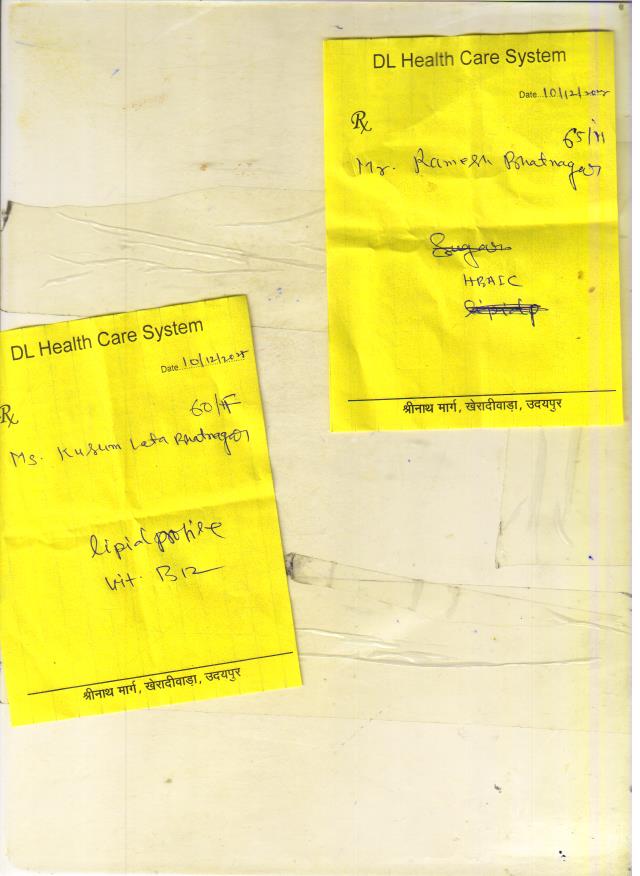 DL Health Care System
Date 10/12/2025
Rx
65/M
Mr. Ramesh Bhatnagar
Sugar
HBA1C
lipidp
श्रीनाथ मार्ग, खेरादीवाड़ा, उदयपुर
DL Health Care System
Date 10/12/2025
Rx
60/F
Ms. Kusum Lata Bhatnagar
lipid profile
Vit. B12
श्रीनाथ मार्ग, खेरादीवाड़ा, उदयपुर